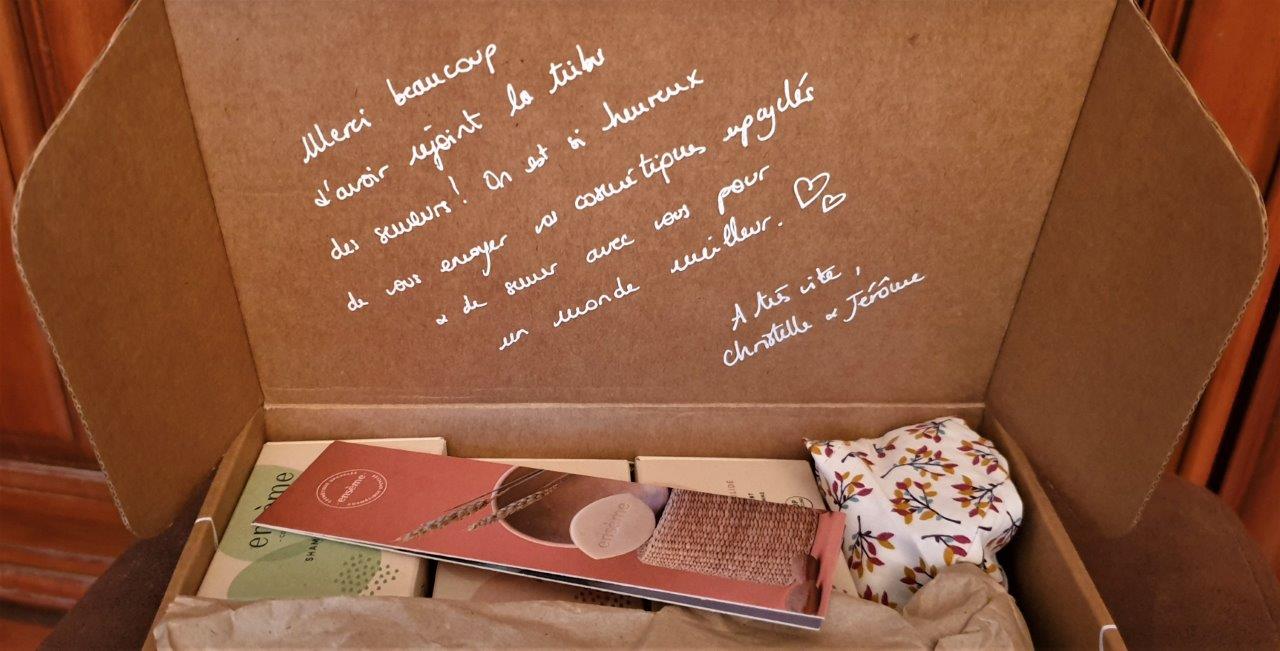 Merci beaucoup
d'avoir rejoint la tribu
des semeurs! On est si heureux
de vous envoyer vos cosmétiques upcyclés
& de semer avec vous pour
un monde meilleur.
A très vite,
Christelle & Jérôme
enoème
SHAM
enoème
enoème